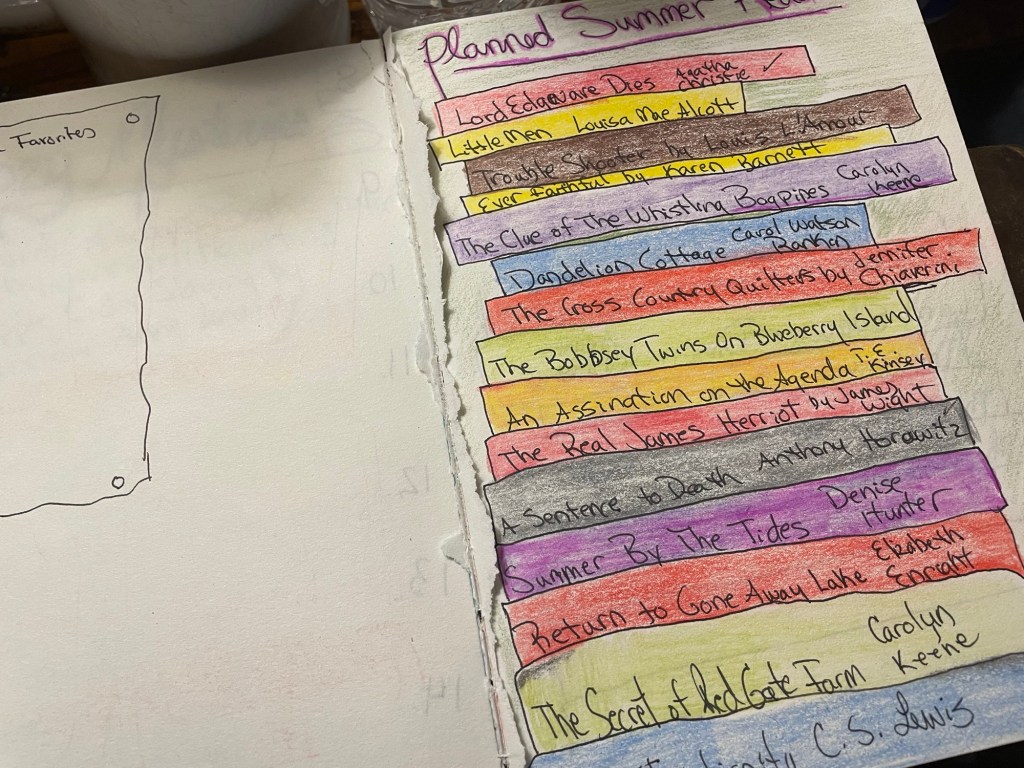 Favorites
Planned Summer
Lord Edgware Dies Agatha Christie ✓
Little Men Louisa Mae Alcott
Trouble Shooter by Louis L'Amour
Ever Faithful by Karen Barnett
The Clue of The Whistling Bagpipes Carolyn Keene
Dandelion Cottage Carol Watson Rankin
The Cross Country Quilters by Jennifer Chiaverini
The Bobbsey Twins On Blueberry Island
An Assination on the Agenda T.E Kinsey
The Real James Herriot by James Wight
A Sentence to Death Anthony Horowitz
Summer By The Tides Denise Hunter
Return to Gone Away Lake Elizabeth Enright
The Secret of Red Gate Farm Carolyn Keene
C.S. Lewis
9
10
11
12
13
14